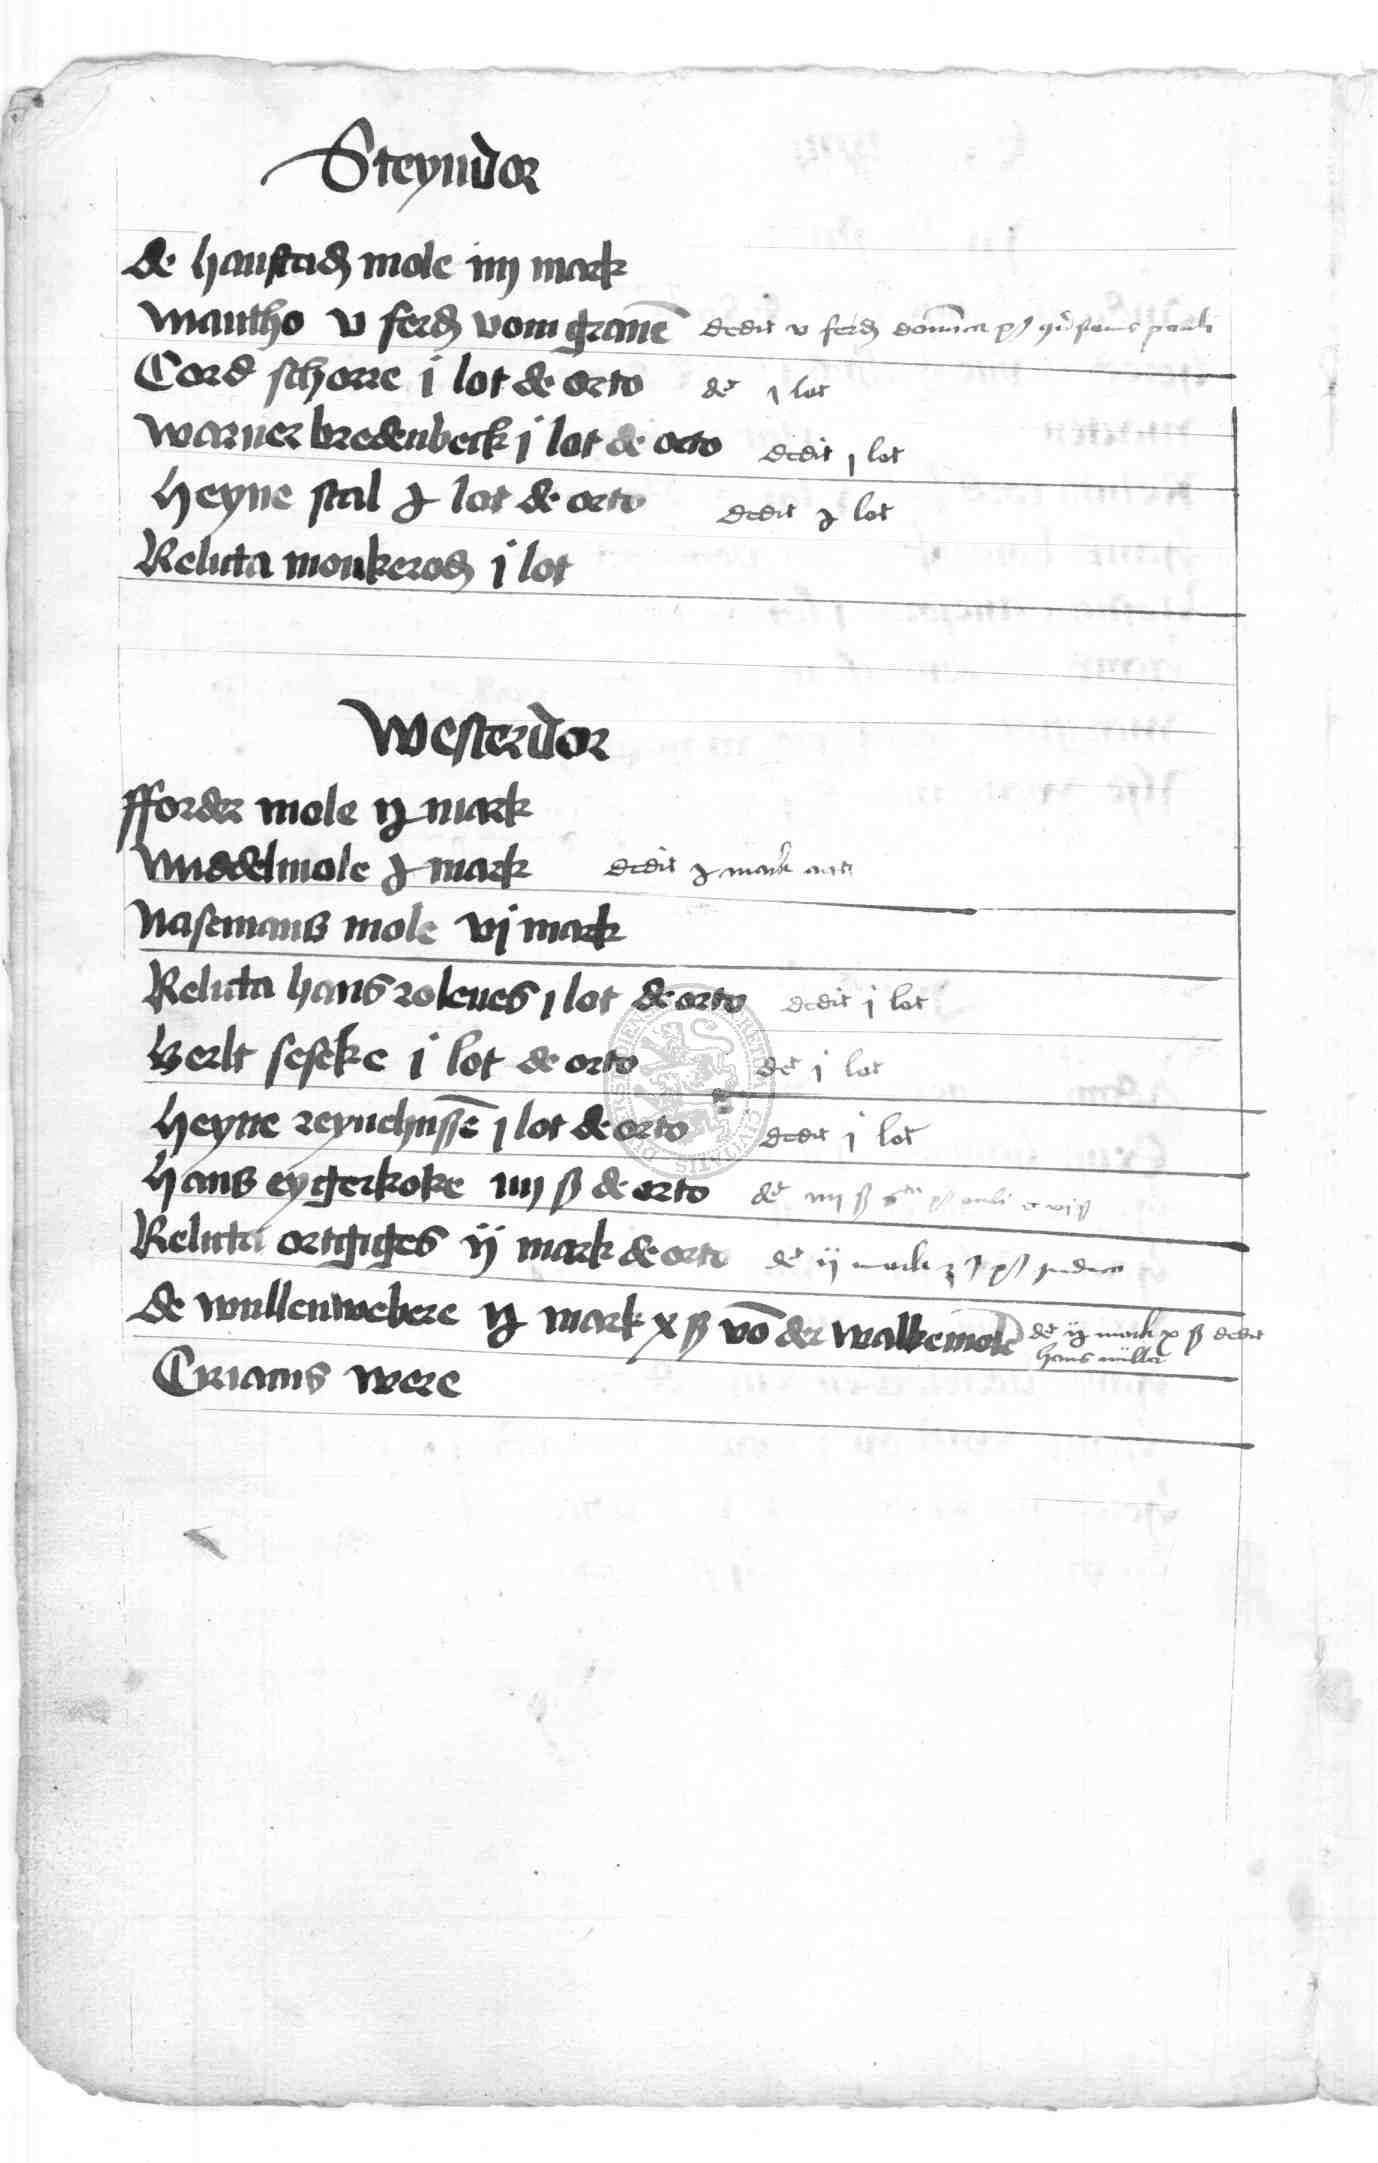 Steyndor
de hanstad mole iiij mark
Mantho v ferd vom grauē dedit v ferd dominica pauli
Cord schorre i lot de orto dt j lot
Warner bredenbeck j lot de orto dedit j lot
Heyne stal j lot de orto dedit j lot
Relicta monkerod j lot
Westerdor
fforder mole ij mark
Middelmole j mark dedit j mark
Nasemans mole vj mark
Relicta hans roleues j lot de orto dedit j lot
Berlt seseke i lot de orto dt j lot
Heyne reynehussē j lot de orto dedit j lot
Hans eygerkoke iiij ß de orto dt iiij ß
Relicta ortgiges ij mark de orto dt ij mark
de wullenwebere ij mark x ß vō der walkemole dt ij mark x ß dedit
hans müller
Ciriacus were